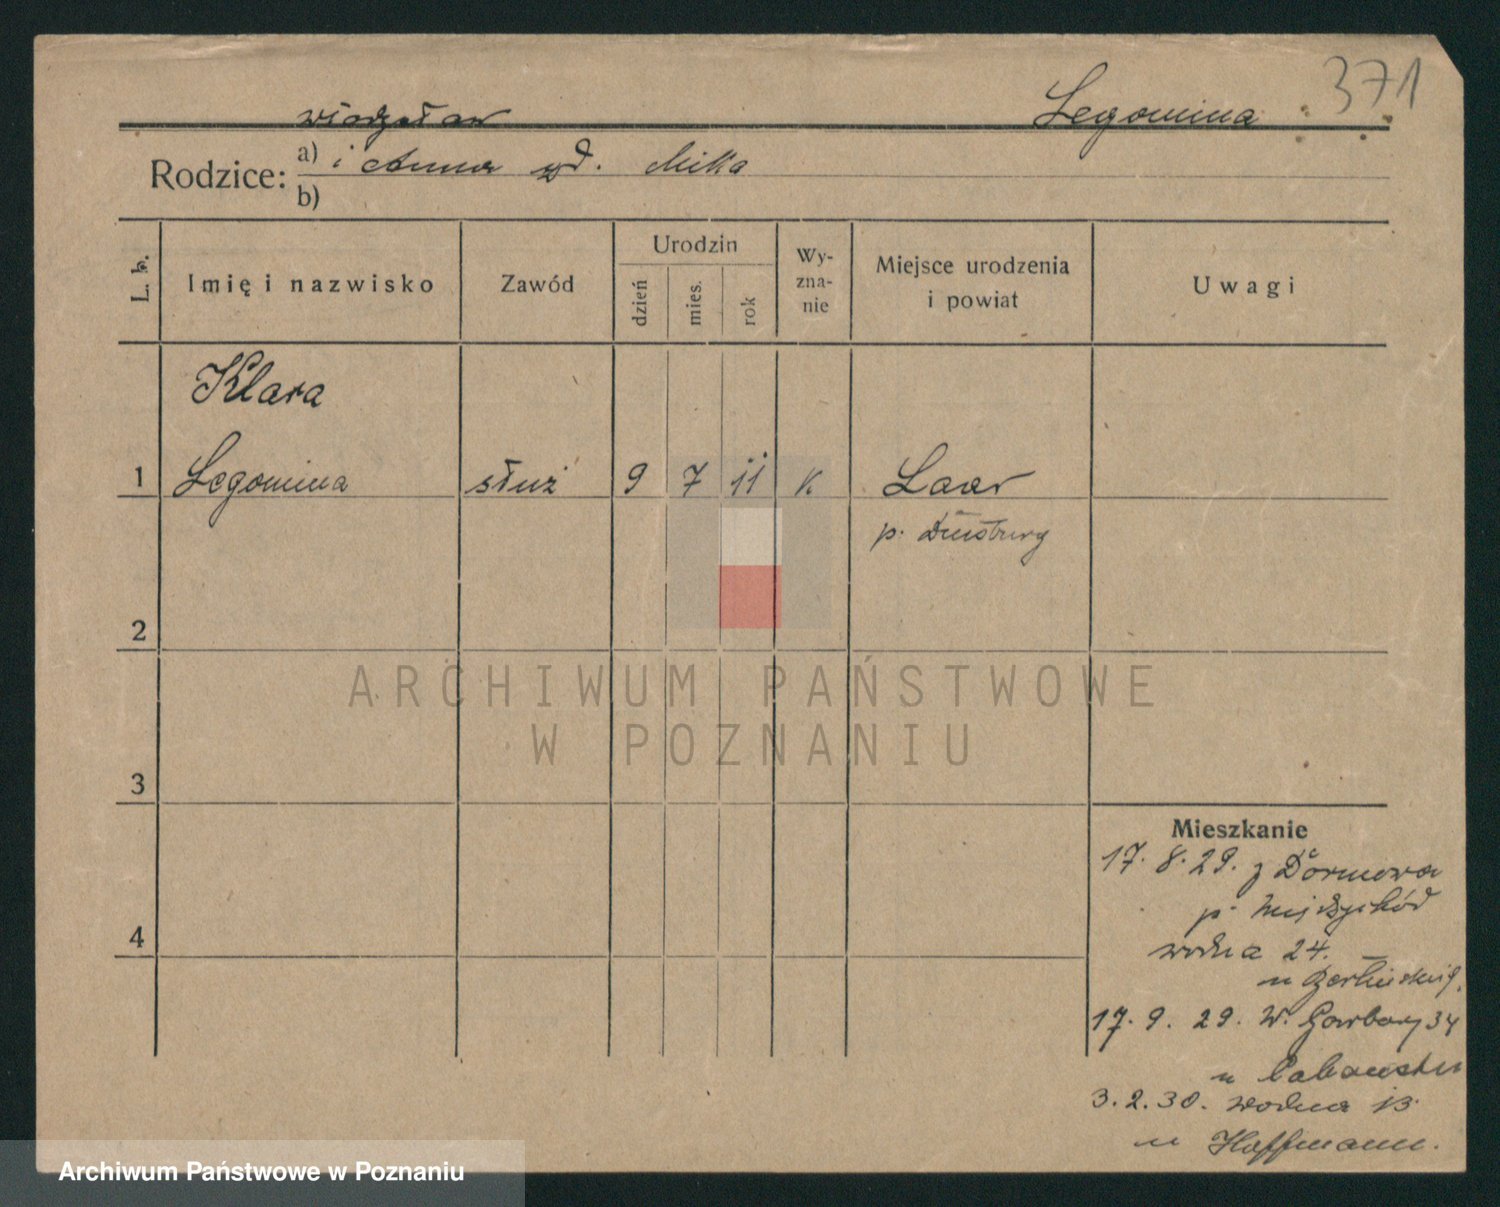 371
Legomina
Włodzsław
Rodzice: a) i Anna zd. Mika
b)
L. b.
Imię i nazwisko
Zawód
Urodzin
dzień
mies.
rok
Wy-
zna-
nie
Miejsce urodzenia
i powiat
Uwagi
Klara
1 Legomina służ 9 7 11 K Laar
p. Duisburg
2
3
4
Mieszkanie
17. 8. 29. z Dormowa
p. Międzychód
wodna 24.
u
17. 9. 29. W. Garbary 34
u
3. 2. 30. wodna 13
u Hoffmann.
ARCHIWUM PAŃSTWOWE
W POZNANIU
Archiwum Państwowe w Poznaniu